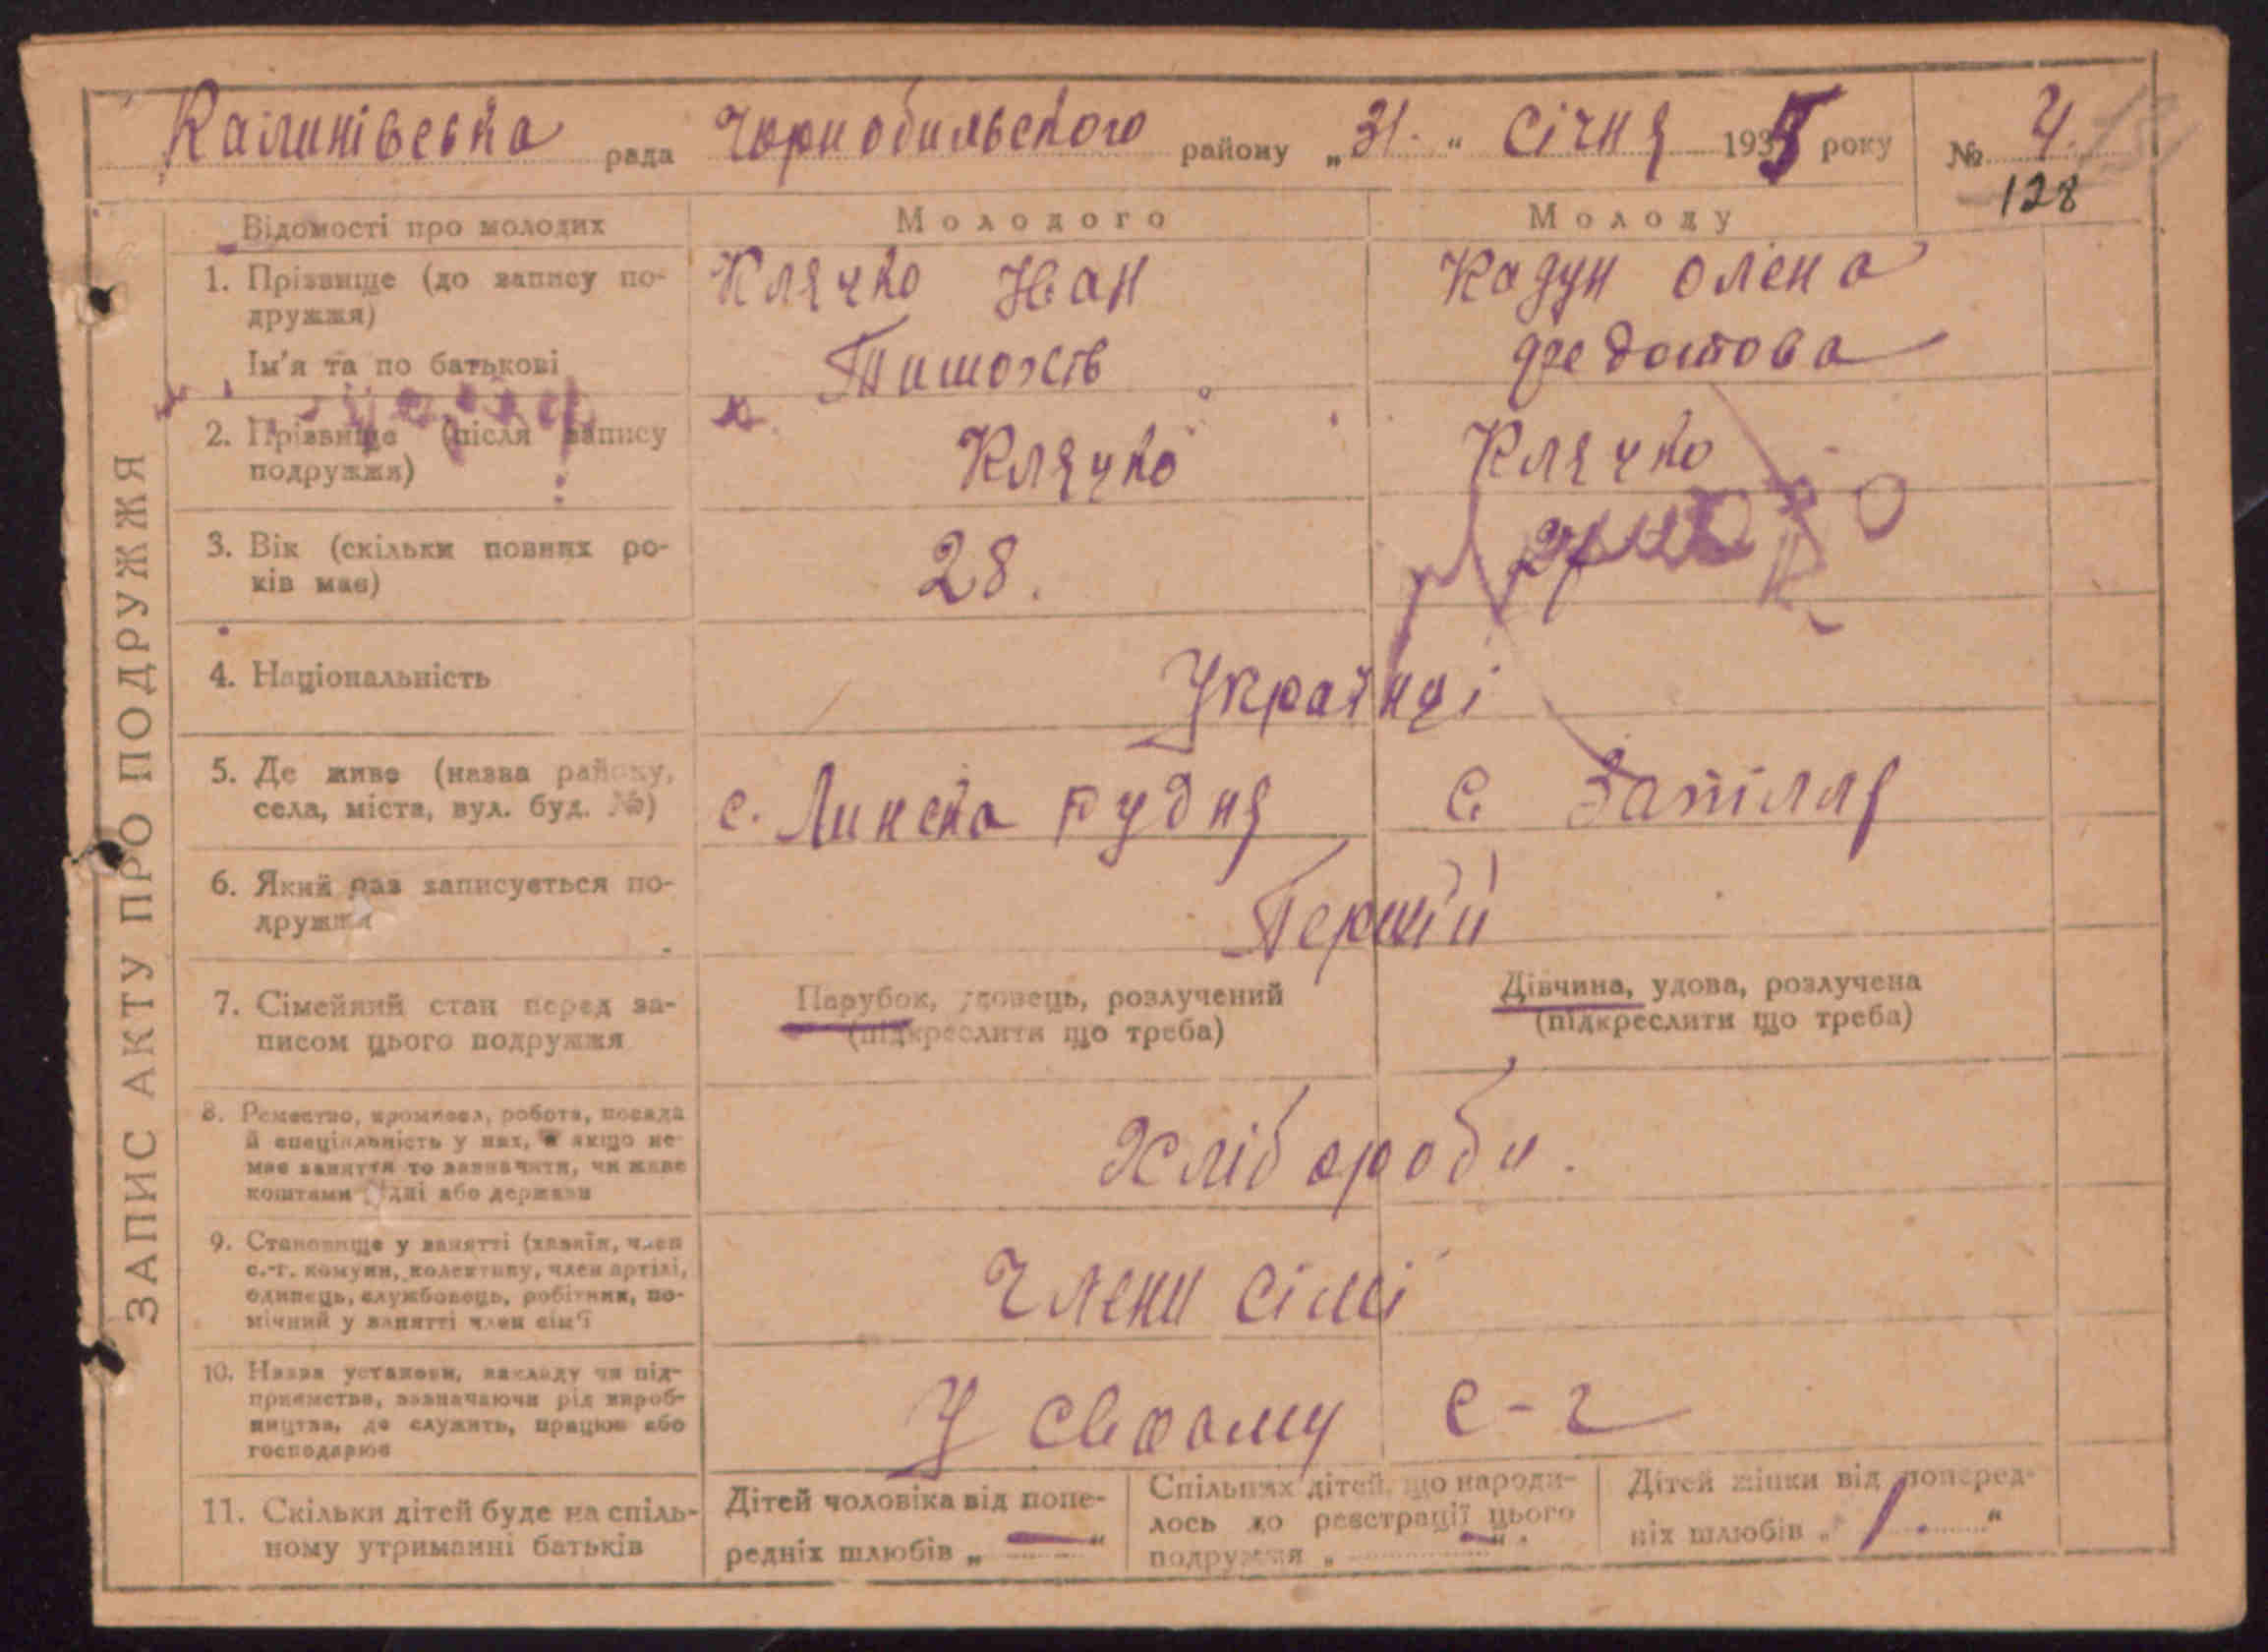 Калинівська рада Чорнобильського району „31" Січня 1935 року № 4.
128
ЗАПИС АКТУ ПРО ПОДРУЖЖЯ
Відомості про молодих Молодого Молоду
1. Прізвище (до запису по- Клячко Іван Кадун Олена
дружжя)
Ім'я та по батькові Тимохів Федотова
2. Прізвище (після запису Клячко Клячко
подружжя)
3. Вік (скільки повних ро- 28.
ків має)
4. Національність Українці
5. Де живе (назва району, с. Линска Рудня с.
села, міста, вул. буд. №)
6. Який раз записується по- Першій
дружжя
7. Сімейний стан перед за- Парубок, удовець, розлучений Дівчина, удова, розлучена
писом цього подружжя (підкреслити що треба) (підкреслити що треба)
8. Ремество, промисел, робота, посада Хлібороби.
й спеціяльність у них, а якщо не-
має заняття то зазначити, чи живе
коштами рідні або держави
9. Становище у занятті (хазяїн, член Члени сімї
с.-г. комуни, колективу, член артілі,
одинець, службовець, робітник, по-
мічний у занятті член сім'ї
10. Назва установи, закладу чи під- У своому с-г
приємства, зазначаючи рід вироб-
ництва, де служить, працює або
господарює
11. Скільки дітей буде на спіль- Дітей чоловіка від попе- Спільних дітей, що народи- Дітей жінки від поперед-
ному утриманні батьків редніх шлюбів „—" лось до реєстрації цього ніх шлюбів „ "
подружжя „—".